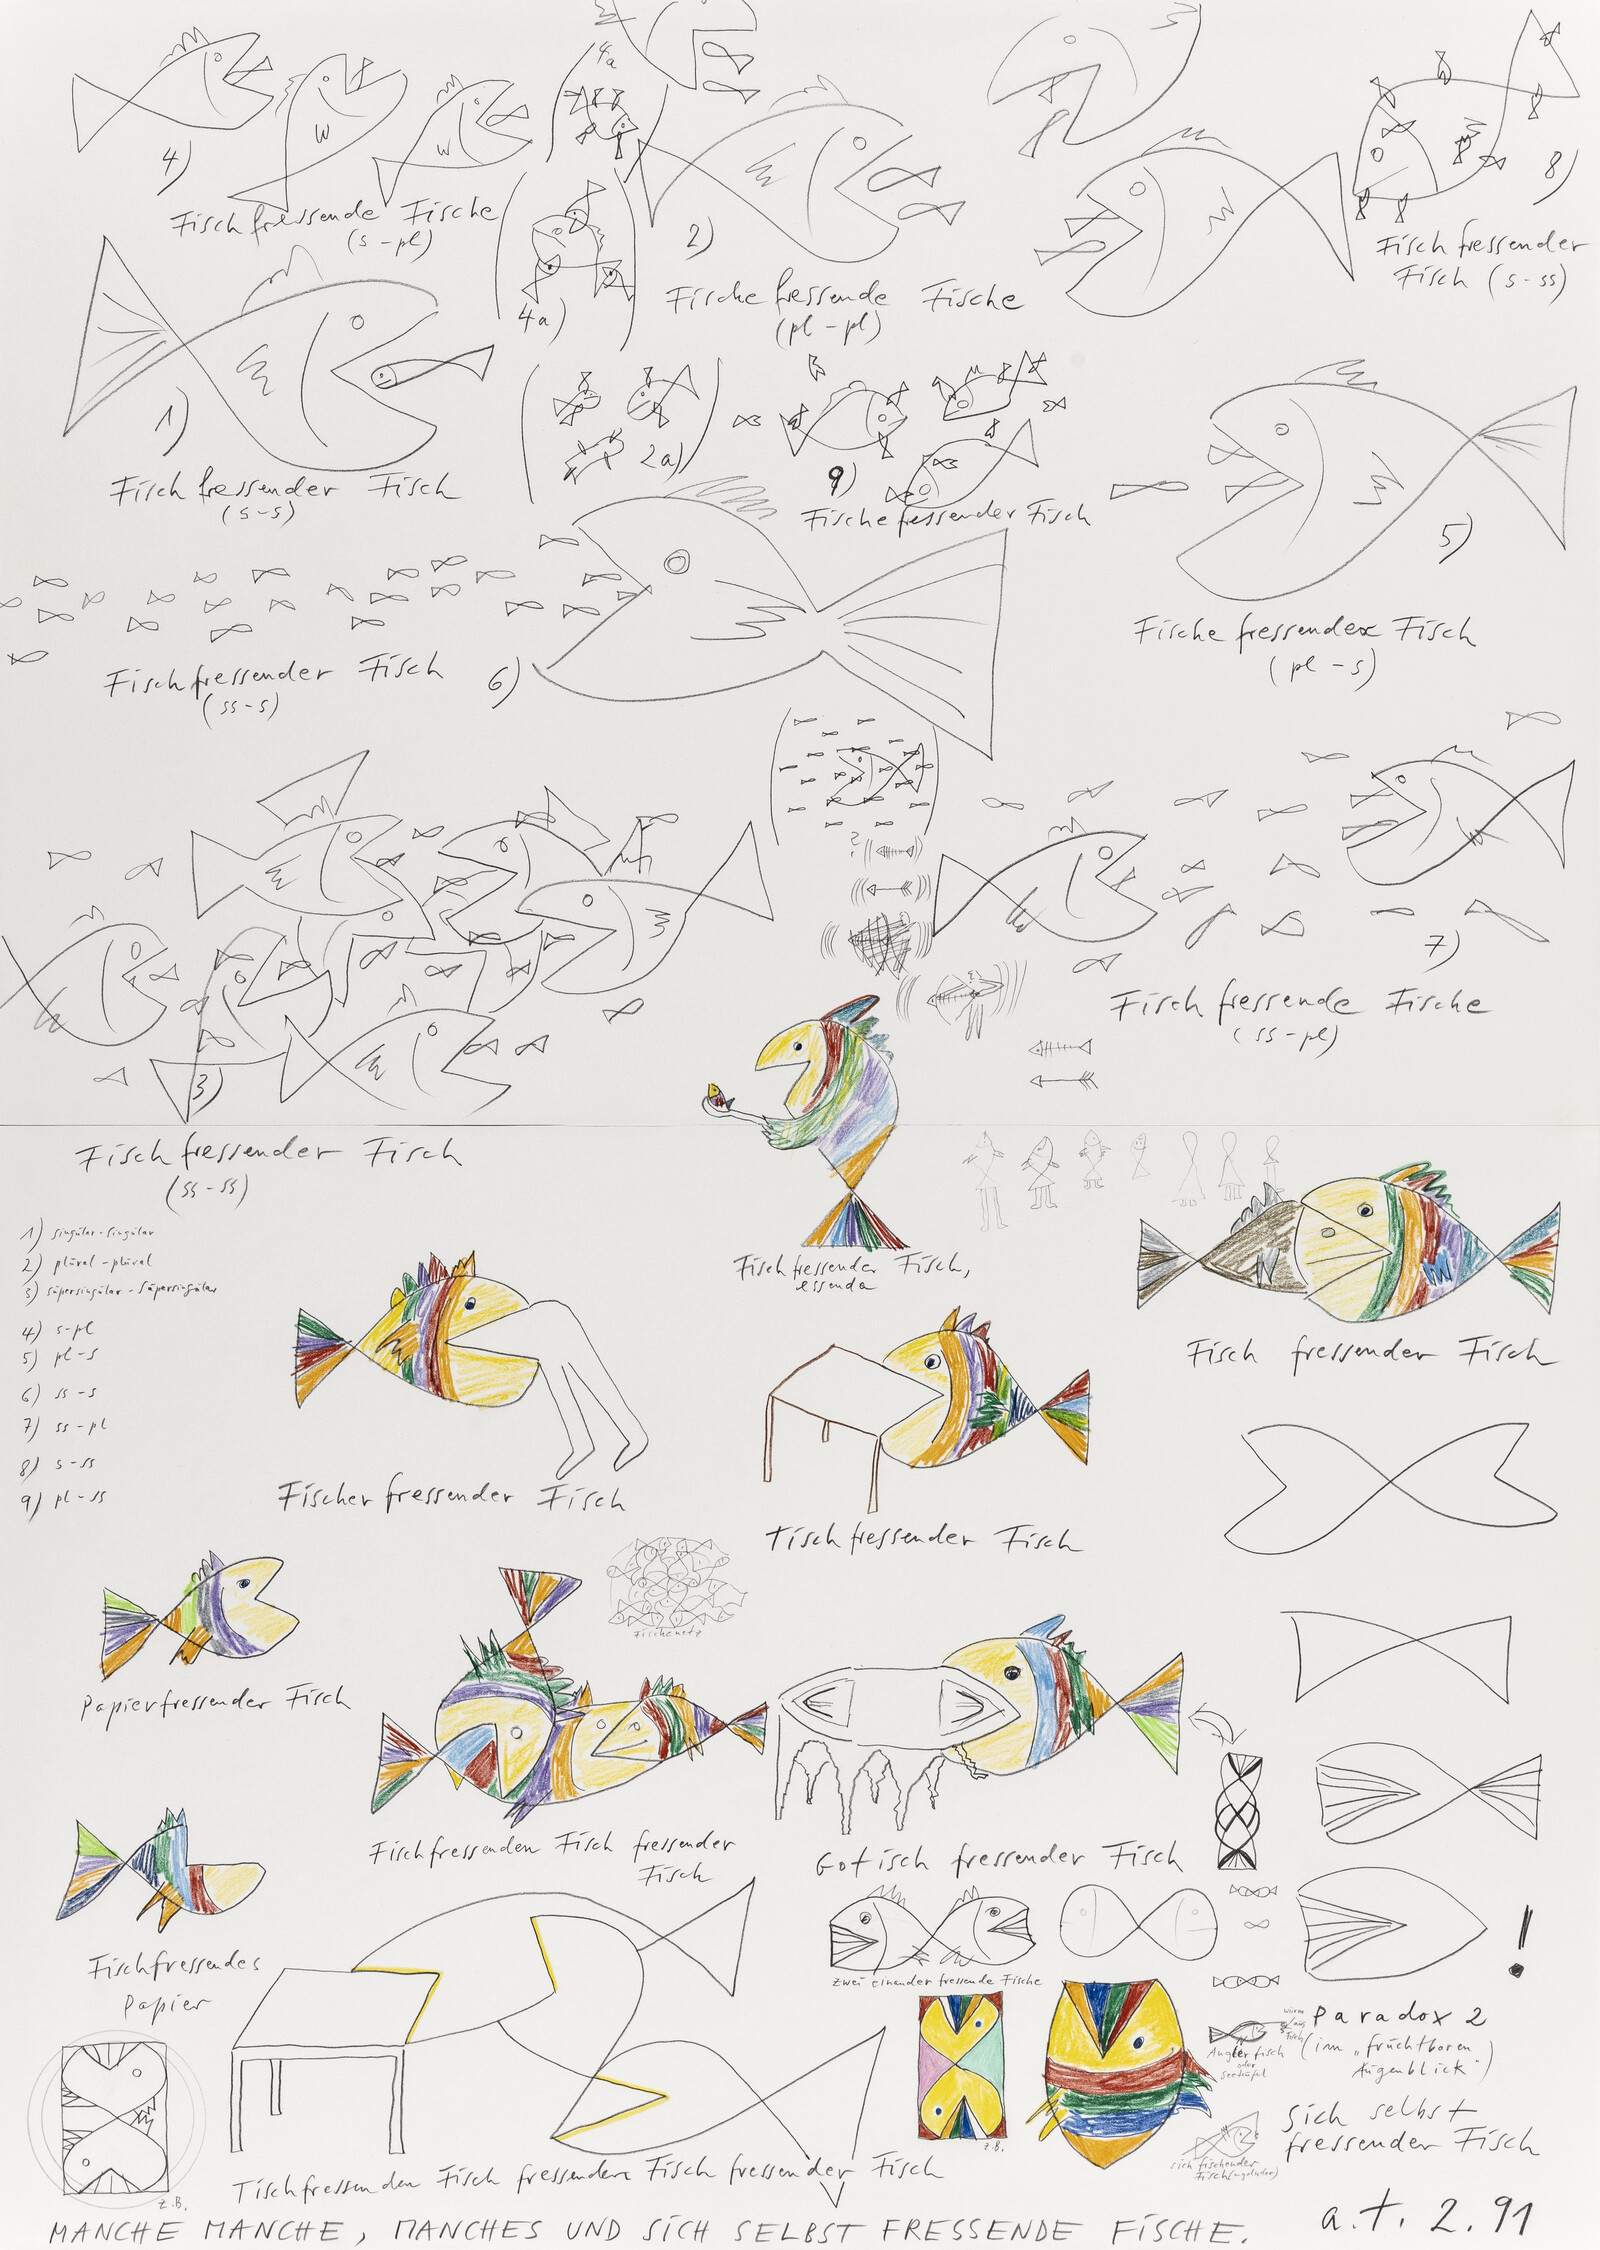 4)
Fisch fressende Fische
(s-pl)
4a
4a)
2)
Fische fressende Fische
(pl-pl)
8)
Fisch fressender
Fisch (s-ss)
1)
Fisch fressender Fisch
(s-s)
2a)
9)
Fische fressender Fisch
5)
Fische fressender Fisch
(pl-s)
Fisch fressender Fisch
(ss-s)
6)
7)
Fisch fressende Fische
(ss-pl)
3)
Fisch fressender Fisch
(ss-ss)
1) singular-singular
2) plural-plural
3) supersingular-supersingular
4) s-pl
5) pl-s
6) ss-s
7) ss-pl
8) s-ss
9) pl-ss
Fisch fressender Fisch,
essenda
Fisch fressender Fisch
Fischer fressender Fisch
Tisch fressender Fisch
Fischenetz
Papierfressender Fisch
Fischfressenden Fisch fressender
Fisch
Gotisch fressender Fisch
Fischfressendes
Papier
zwei einander fressende Fische
z.B.
z.B.
Paradox 2
(im „fruchtbaren
Augenblick")
Anglerfisch
oder
Seeteufel
Sich selbst
fressender Fisch
sich fischender
Tischfressenden Fisch fressender Fisch fressender Fisch
MANCHE MANCHE, MANCHES UND SICH SELBST FRESSENDE FISCHE.
a.t. 2.91